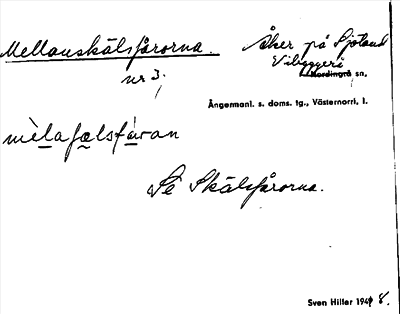 Mellanskälsfårorna. Åker på Sjöland
nr 3. Vibyggerå
Nordingrå sn.
Ångermanl. s. doms. tg., Västernorrl. l.
mèlafælsfåran
Se Skälsfårorna.
Sven Hiller 1948.